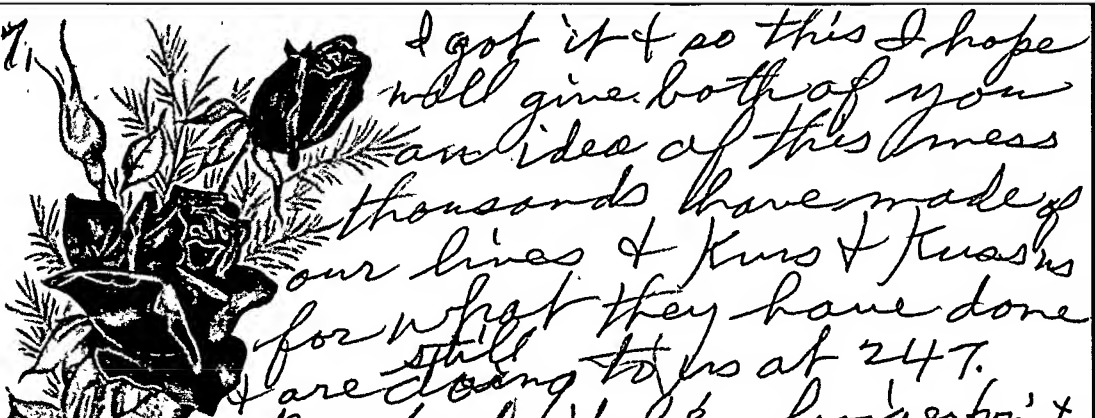 I got it & so this I hope
will give both of you
an idea of this mess
thousands have made of
our lives & Kurs & Kuasns
for what they have done
still
& are doing to us at 247.